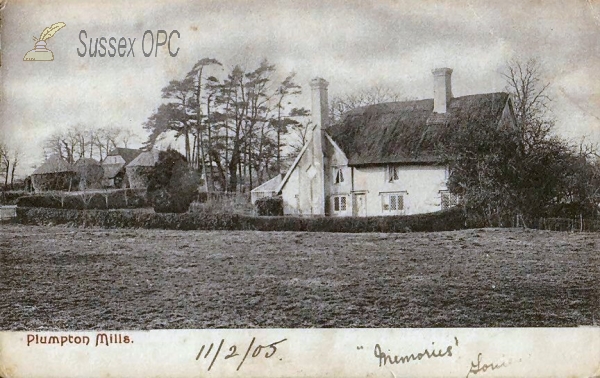 Sussex OPC
Plumpton Mills.
11/2/05.
"Memories"
Louie